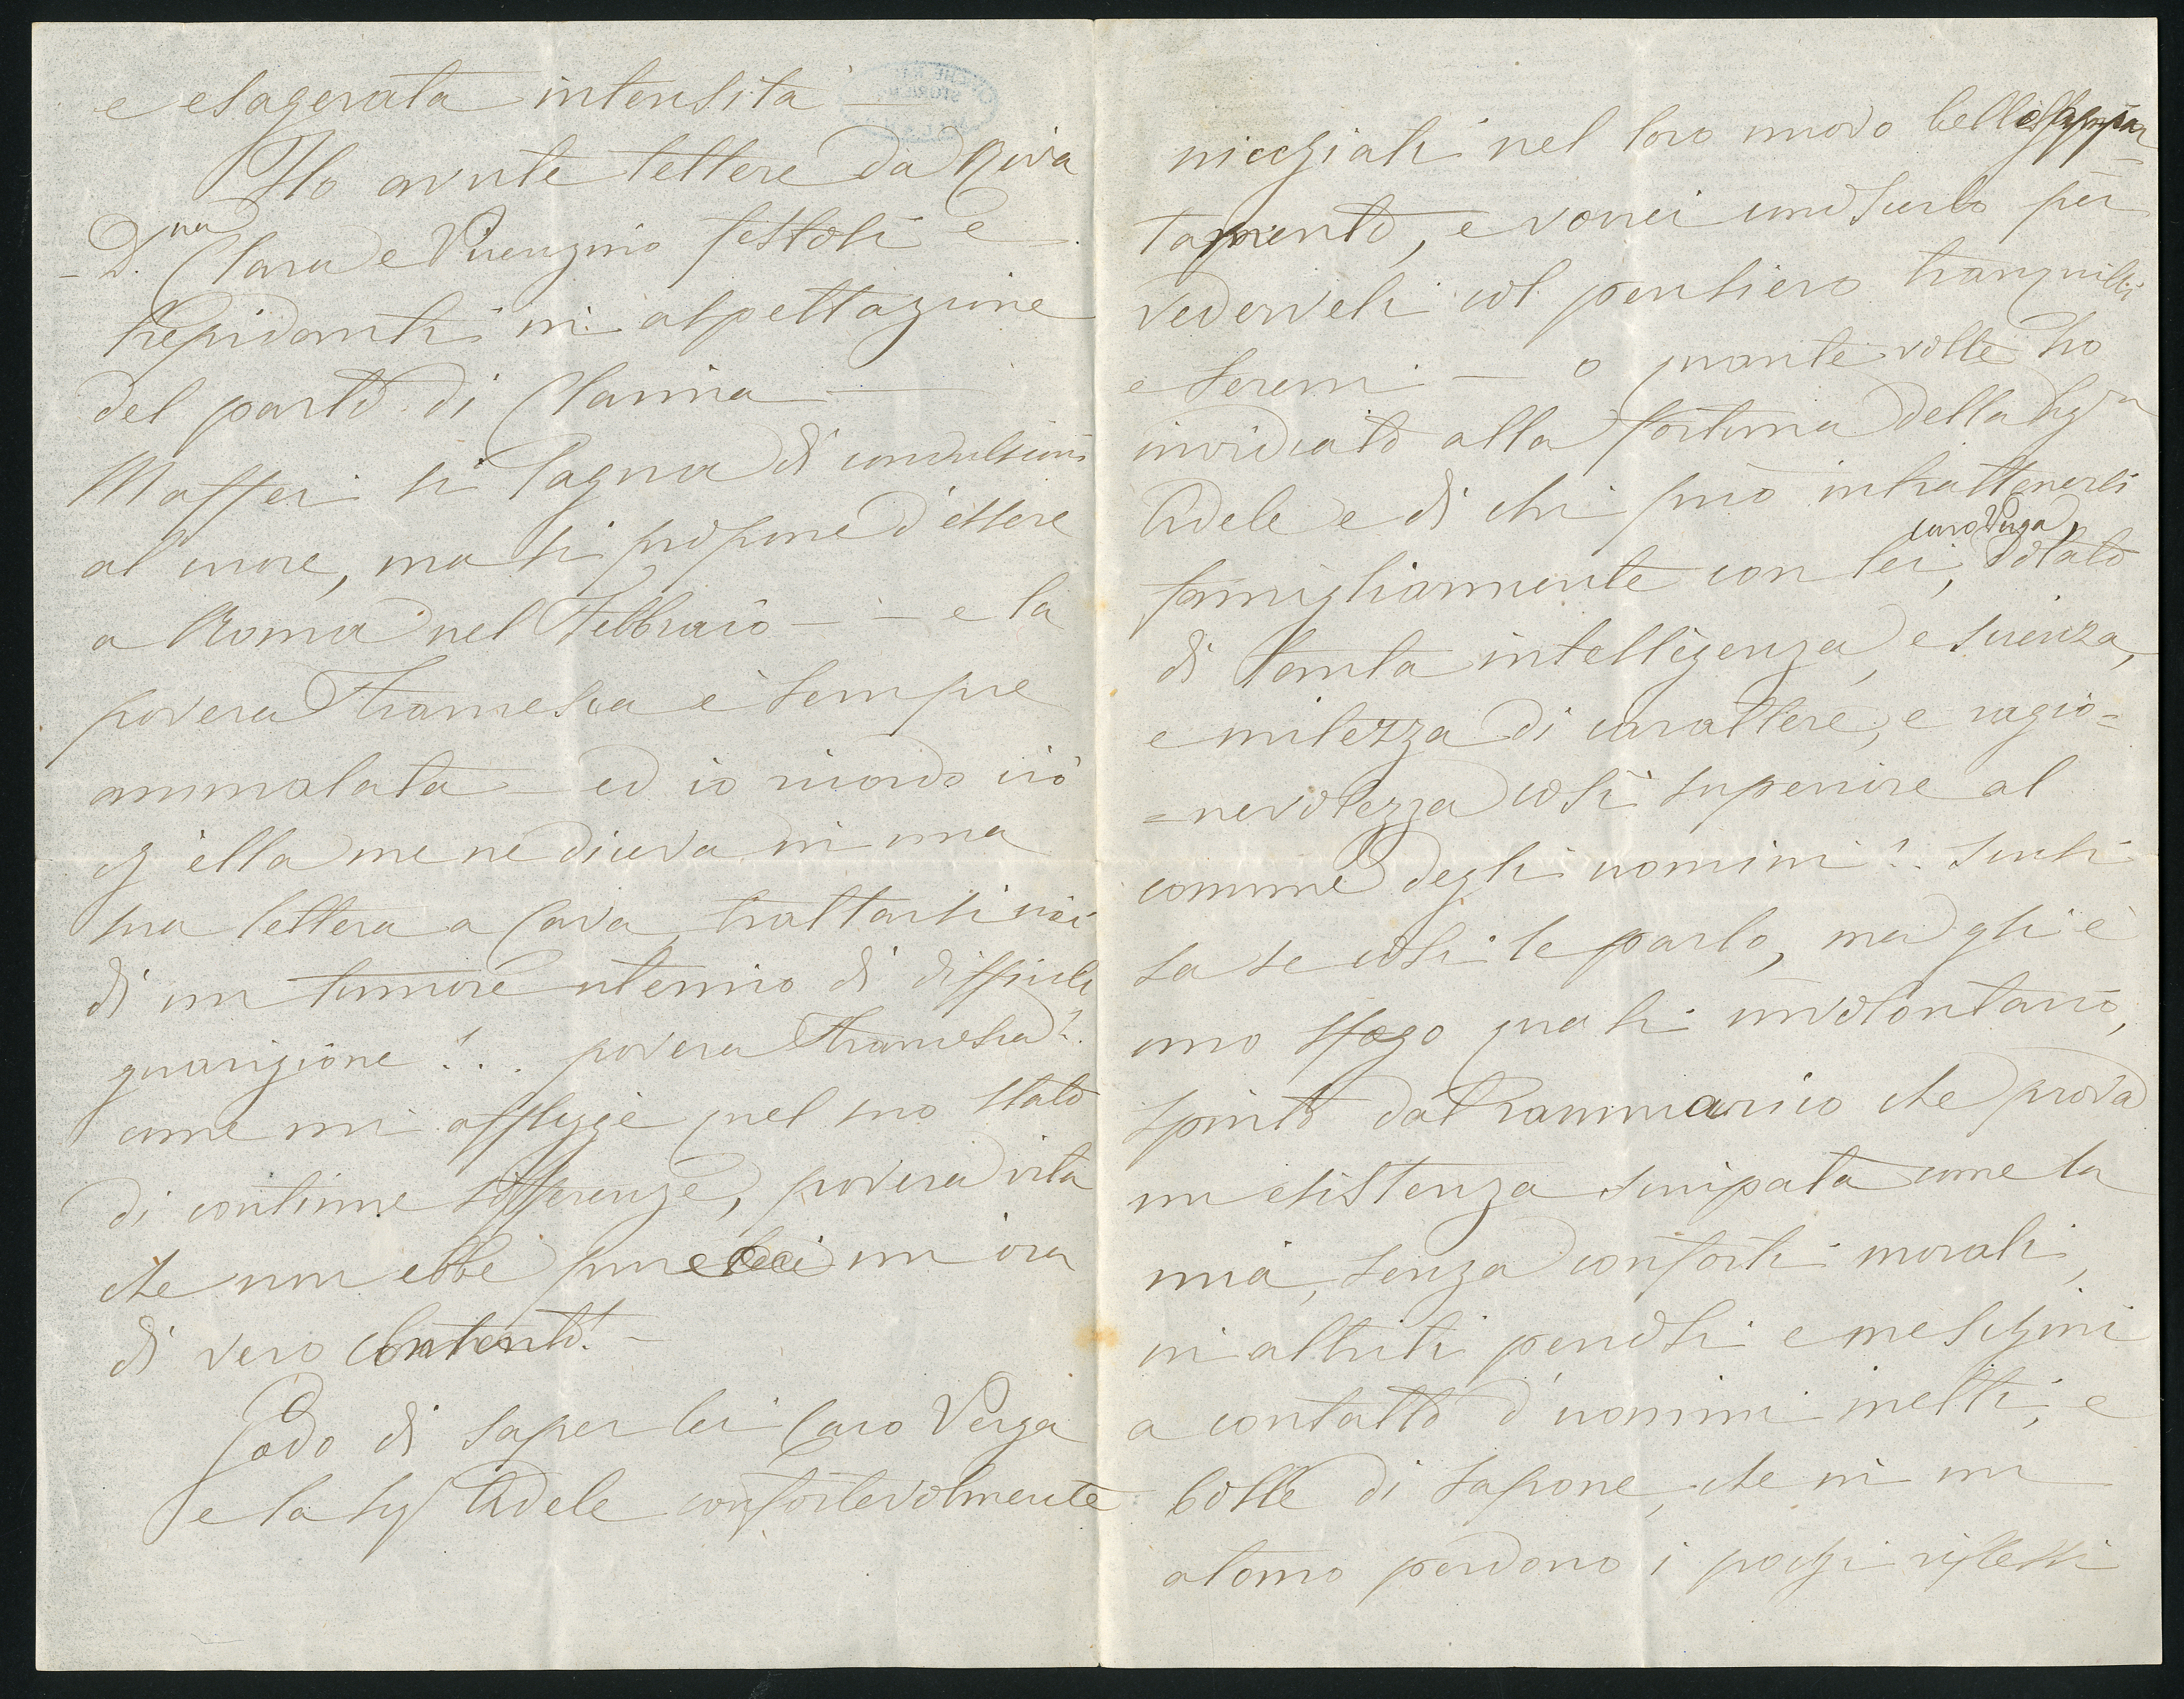 e esagerata intensità —
Ho avute lettere da Riva
– D.na Clara e Vicenzino festosi e
trepidanti in aspettazione
del parto di Clarina —
Maffei si lagna di convulsioni
al cuore, ma si propone d'essere
a Roma nel Febbraio – – e la
povera Francesca è sempre
ammalata — ed io ricordo ciò
ch'ella me ne diceva in una
sua lettera a Cava trattarsi cioè
di un tumore uterino di difficile
guarigione!.. povera Francesca!.
come mi affligge quel suo stato
di continue sofferenze, povera vita
che non ebbe pure un'ora
di vero contento! –
Godo di saper lei Caro Verga
e la Sigra Adele confortevolmente
nicchiati nel loro nuovo bell'appar
tamento, e vorrei costì per
vederveli col pensiero tranquilli
e sereni — o quante volte ho
invidiato alla fortuna della Sigra
Adele e di chi può intrattenersi
famigliarmente con lei, caro Verga, dotato
di tanta intelligenza, e scienza,
e mitezza di carattere, e ragio=
=nevolezza così superiore al
comune degli uomini!. Scusi
sa se così le parlo, ma gli è
uno sfogo quasi involontario,
spinto dal rammarico che prova
un esistenza sciupata come la
mia, senza conforti morali,
in attriti penosi e meschini
a contatto d'uomini inetti, e
bolle di sapone, che in un
atomo perdono i pochi riflessi